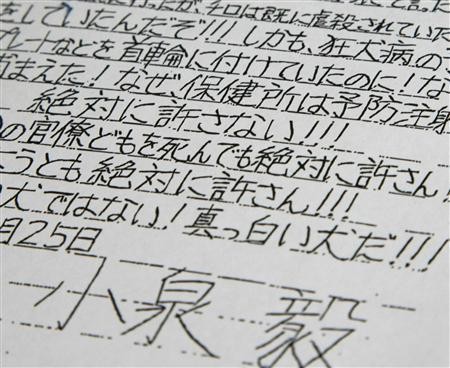 チロは既に虐殺されていた
をしていたんだぞ!!!しかも、狂犬病の
プレートなどを首輪に付けていたのに!な
まえた!なぜ、保健所は予防注射
絶対に許さない!!!
の官僚どもを死んでも絶対に許さん!
うとも絶対に許さん!!!
犬ではない!真っ白い犬だ!!!
月25日
小泉 毅